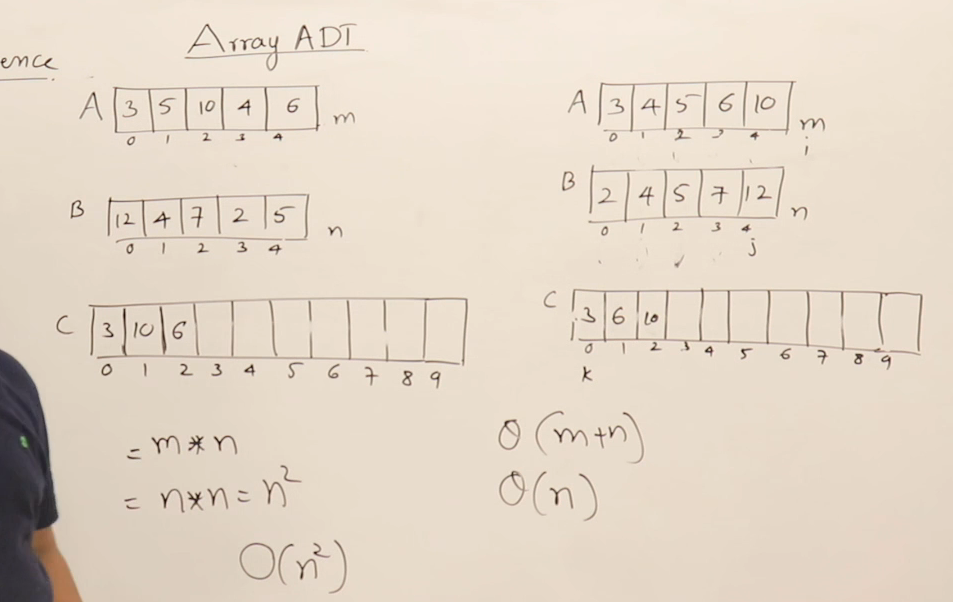 ence
Array ADT
A 3 5 10 4 6 m
0 1 2 3 4
B 12 4 7 2 5 n
0 1 2 3 4
C 3 10 6
0 1 2 3 4 5 6 7 8 9
= m * n
= n * n = n²
O(n²)
A 3 4 5 6 10 m
0 1 2 3 4 i
B 2 4 5 7 12 n
0 1 2 3 4
j
C 3 6 10
0 1 2 3 4 5 6 7 8 9
k
θ(m+n)
θ(n)